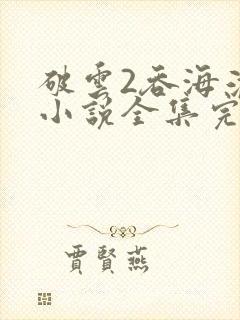 破雲2吞海
小說全集完
賈賢燕